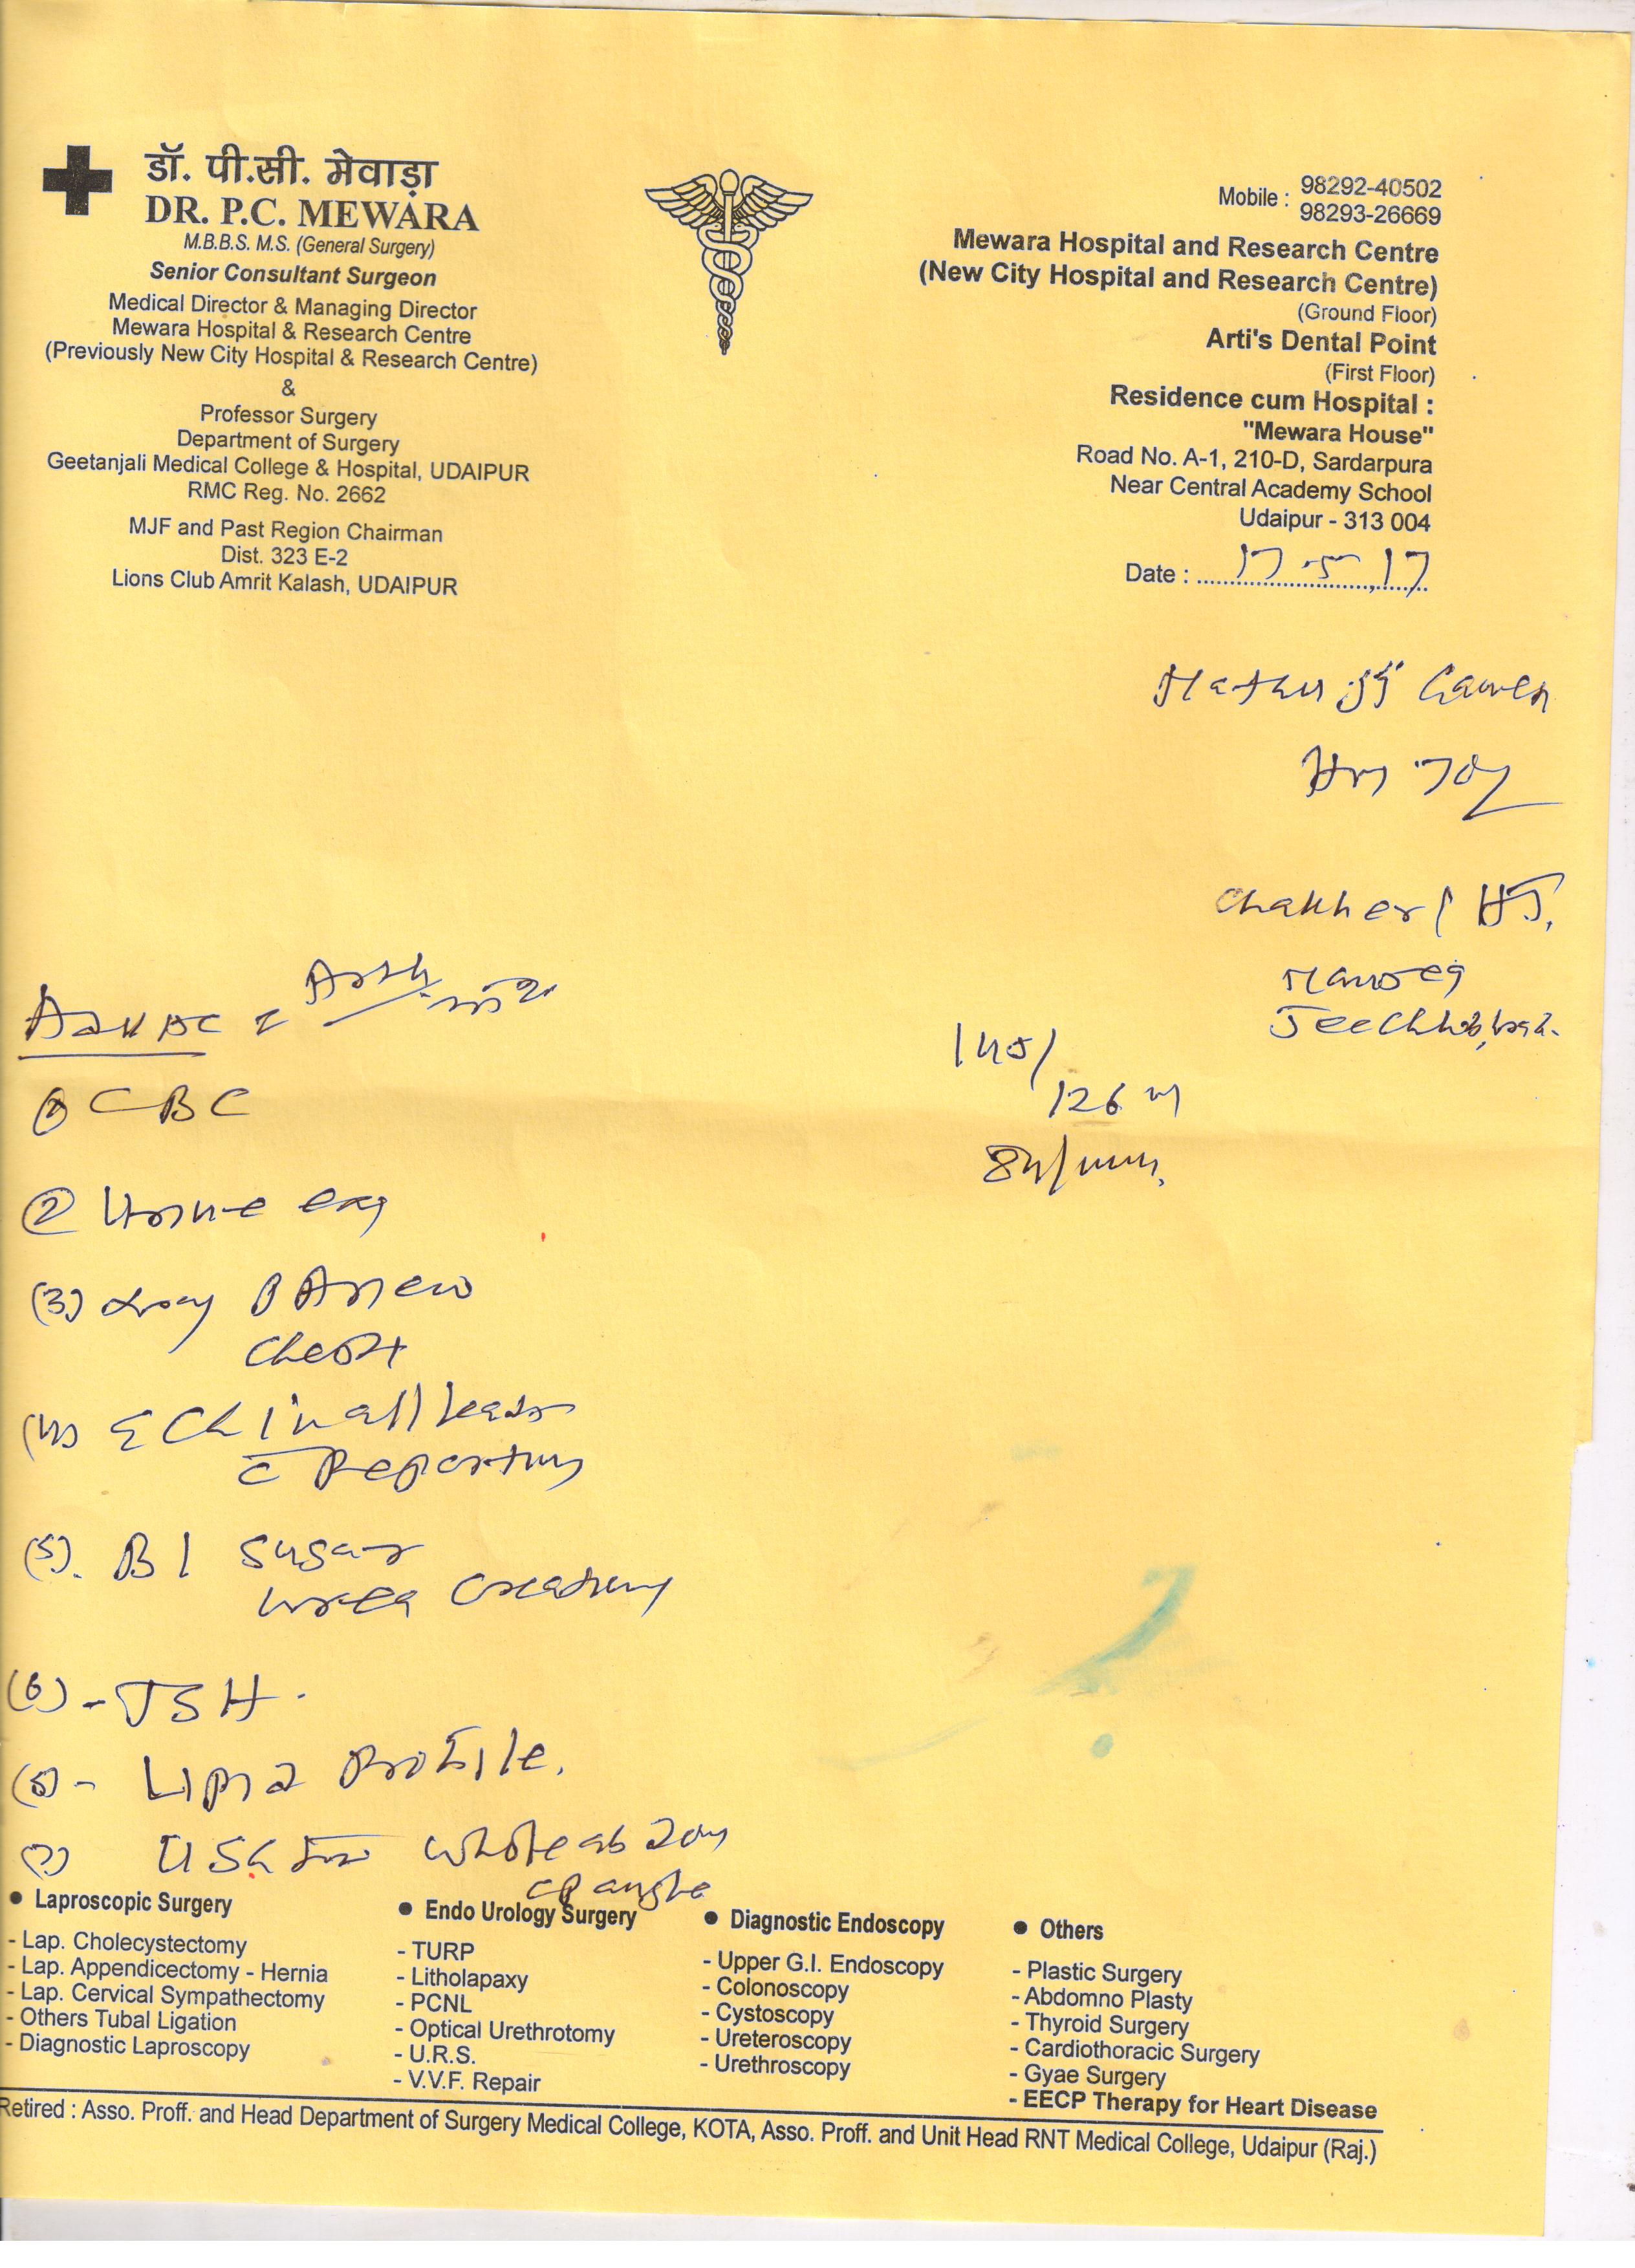 डॉ. पी.सी. मेवाड़ा
DR. P.C. MEWARA
M.B.B.S. M.S. (General Surgery)
Senior Consultant Surgeon
Medical Director & Managing Director
Mewara Hospital & Research Centre
(Previously New City Hospital & Research Centre)
&
Professor Surgery
Department of Surgery
Geetanjali Medical College & Hospital, UDAIPUR
RMC Reg. No. 2662
MJF and Past Region Chairman
Dist. 323 E-2
Lions Club Amrit Kalash, UDAIPUR
Mobile : 98292-40502
98293-26669
Mewara Hospital and Research Centre
(New City Hospital and Research Centre)
(Ground Floor)
Arti's Dental Point
(First Floor)
Residence cum Hospital :
"Mewara House"
Road No. A-1, 210-D, Sardarpura
Near Central Academy School
Udaipur - 313 004
Date : 17.5.17
① CBC
② Urine
(3) Xray
Chest
(4) in all leads
Reporting
(5). Bl Sugar
Urea
(6) - TSH.
- Lipid Profile.
USG whole
● Laproscopic Surgery
- Lap. Cholecystectomy
- Lap. Appendicectomy - Hernia
- Lap. Cervical Sympathectomy
- Others Tubal Ligation
- Diagnostic Laproscopy
● Endo Urology Surgery
- TURP
- Litholapaxy
- PCNL
- Optical Urethrotomy
- U.R.S.
- V.V.F. Repair
● Diagnostic Endoscopy
- Upper G.I. Endoscopy
- Colonoscopy
- Cystoscopy
- Ureteroscopy
- Urethroscopy
● Others
- Plastic Surgery
- Abdomno Plasty
- Thyroid Surgery
- Cardiothoracic Surgery
- Gyae Surgery
- EECP Therapy for Heart Disease
Retired : Asso. Proff. and Head Department of Surgery Medical College, KOTA, Asso. Proff. and Unit Head RNT Medical College, Udaipur (Raj.)